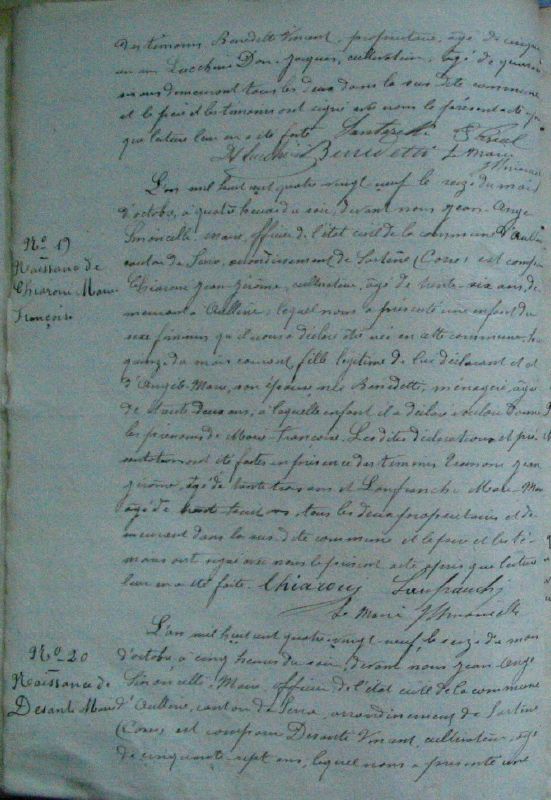 des témoins Benedetti Vincent, propriétaire, âgé de cinquante
un ans Lucchini Don Jacques, cultivateur, âgé de quarante
ans demeurant tous les deux dans la susdite commune
et le père et les témoins ont signé avec nous le présent acte après
que lecture leur en a été faite
Benedetti Le Maire
L'an mil huit cent quatre vingt neuf le seize du mois
d'octobre, à quatre heures du soir, devant nous Jean Ange
Simoncelli, maire, officier de l'état civil de la commune d'Aullène
canton de Serra, arrondissement de Sartène (Corse) est comparu
Nº 19
Naissance de
Chiaroni Marie
Françoise
Chiaroni Jean Jérôme, cultivateur, âgé de trente six ans, de
meurant à Aullène, lequel nous a présenté une enfant du
sexe féminin qu'il nous a déclaré être née en cette commune, le
quinze du mois courant, fille légitime de lui déclarant et
d'Angele Marie, son épouse née Benedetti, ménagère, âgée
de trente deux ans, à laquelle enfant il a déclaré vouloir donner
les prénoms de Marie Françoise. Les dites déclarations et pré
sentation ont été faites en présence des témoins Jean
Jérôme, âgé de trente trois ans et Lanfranchi Marc-Marie
âgé de ans, tous les deux propriétaires et de
meurant dans la susdite commune et le père et les té
moins ont signé avec nous le présent acte après que lecture
leur en a été faite. Chiaroni Lanfranchi
Le Maire Simoncelli
L'an mil huit cent quatre-vingt-neuf, le seize du mois
Nº 20
Naissance de
Desanti Marie
d'octobre, à cinq heures du soir, devant nous Jean Ange
Simoncelli, Maire, officier de l'état civil de la commune
d'Aullène, canton de Serra, arrondissement de Sartène
(Corse) est comparu Desanti Vincent, cultivateur, âgé
de cinquante-sept ans, lequel nous a présenté une